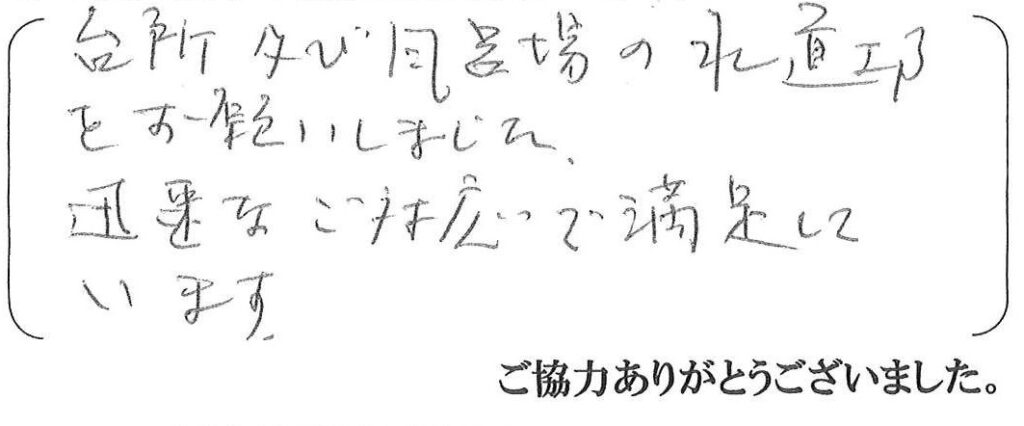 台所及び風呂場の水道工事
をお願いしました。
迅速なご対応で満足して
います。
ご協力ありがとうございました。